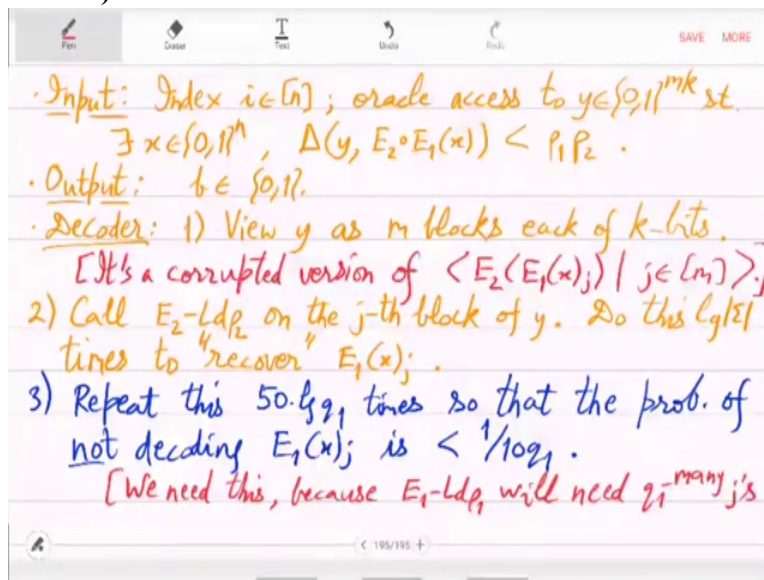 Pen Eraser Text Undo Redo SAVE MORE
· Input: Index i∈[n] ; oracle access to y∈{0,1}^mk st.
∃ x∈{0,1}^n , Δ(y, E₂∘E₁(x)) < ρ₁ρ₂ .
· Output: b ∈ {0,1}.
· Decoder: 1) View y as m blocks each of k-bits.
[It's a corrupted version of <E₂(E₁(x)_j) | j∈[m]>.]
2) Call E₂-Ldρ₂ on the j-th block of y. Do this lg|Σ|
times to "recover" E₁(x)_j .
3) Repeat this 50.lg q₁ times so that the prob. of
not decoding E₁(x)_j is < 1/10q₁ .
[We need this, because E₁-Ldρ₁ will need q₁-many j's
< 195/195 +